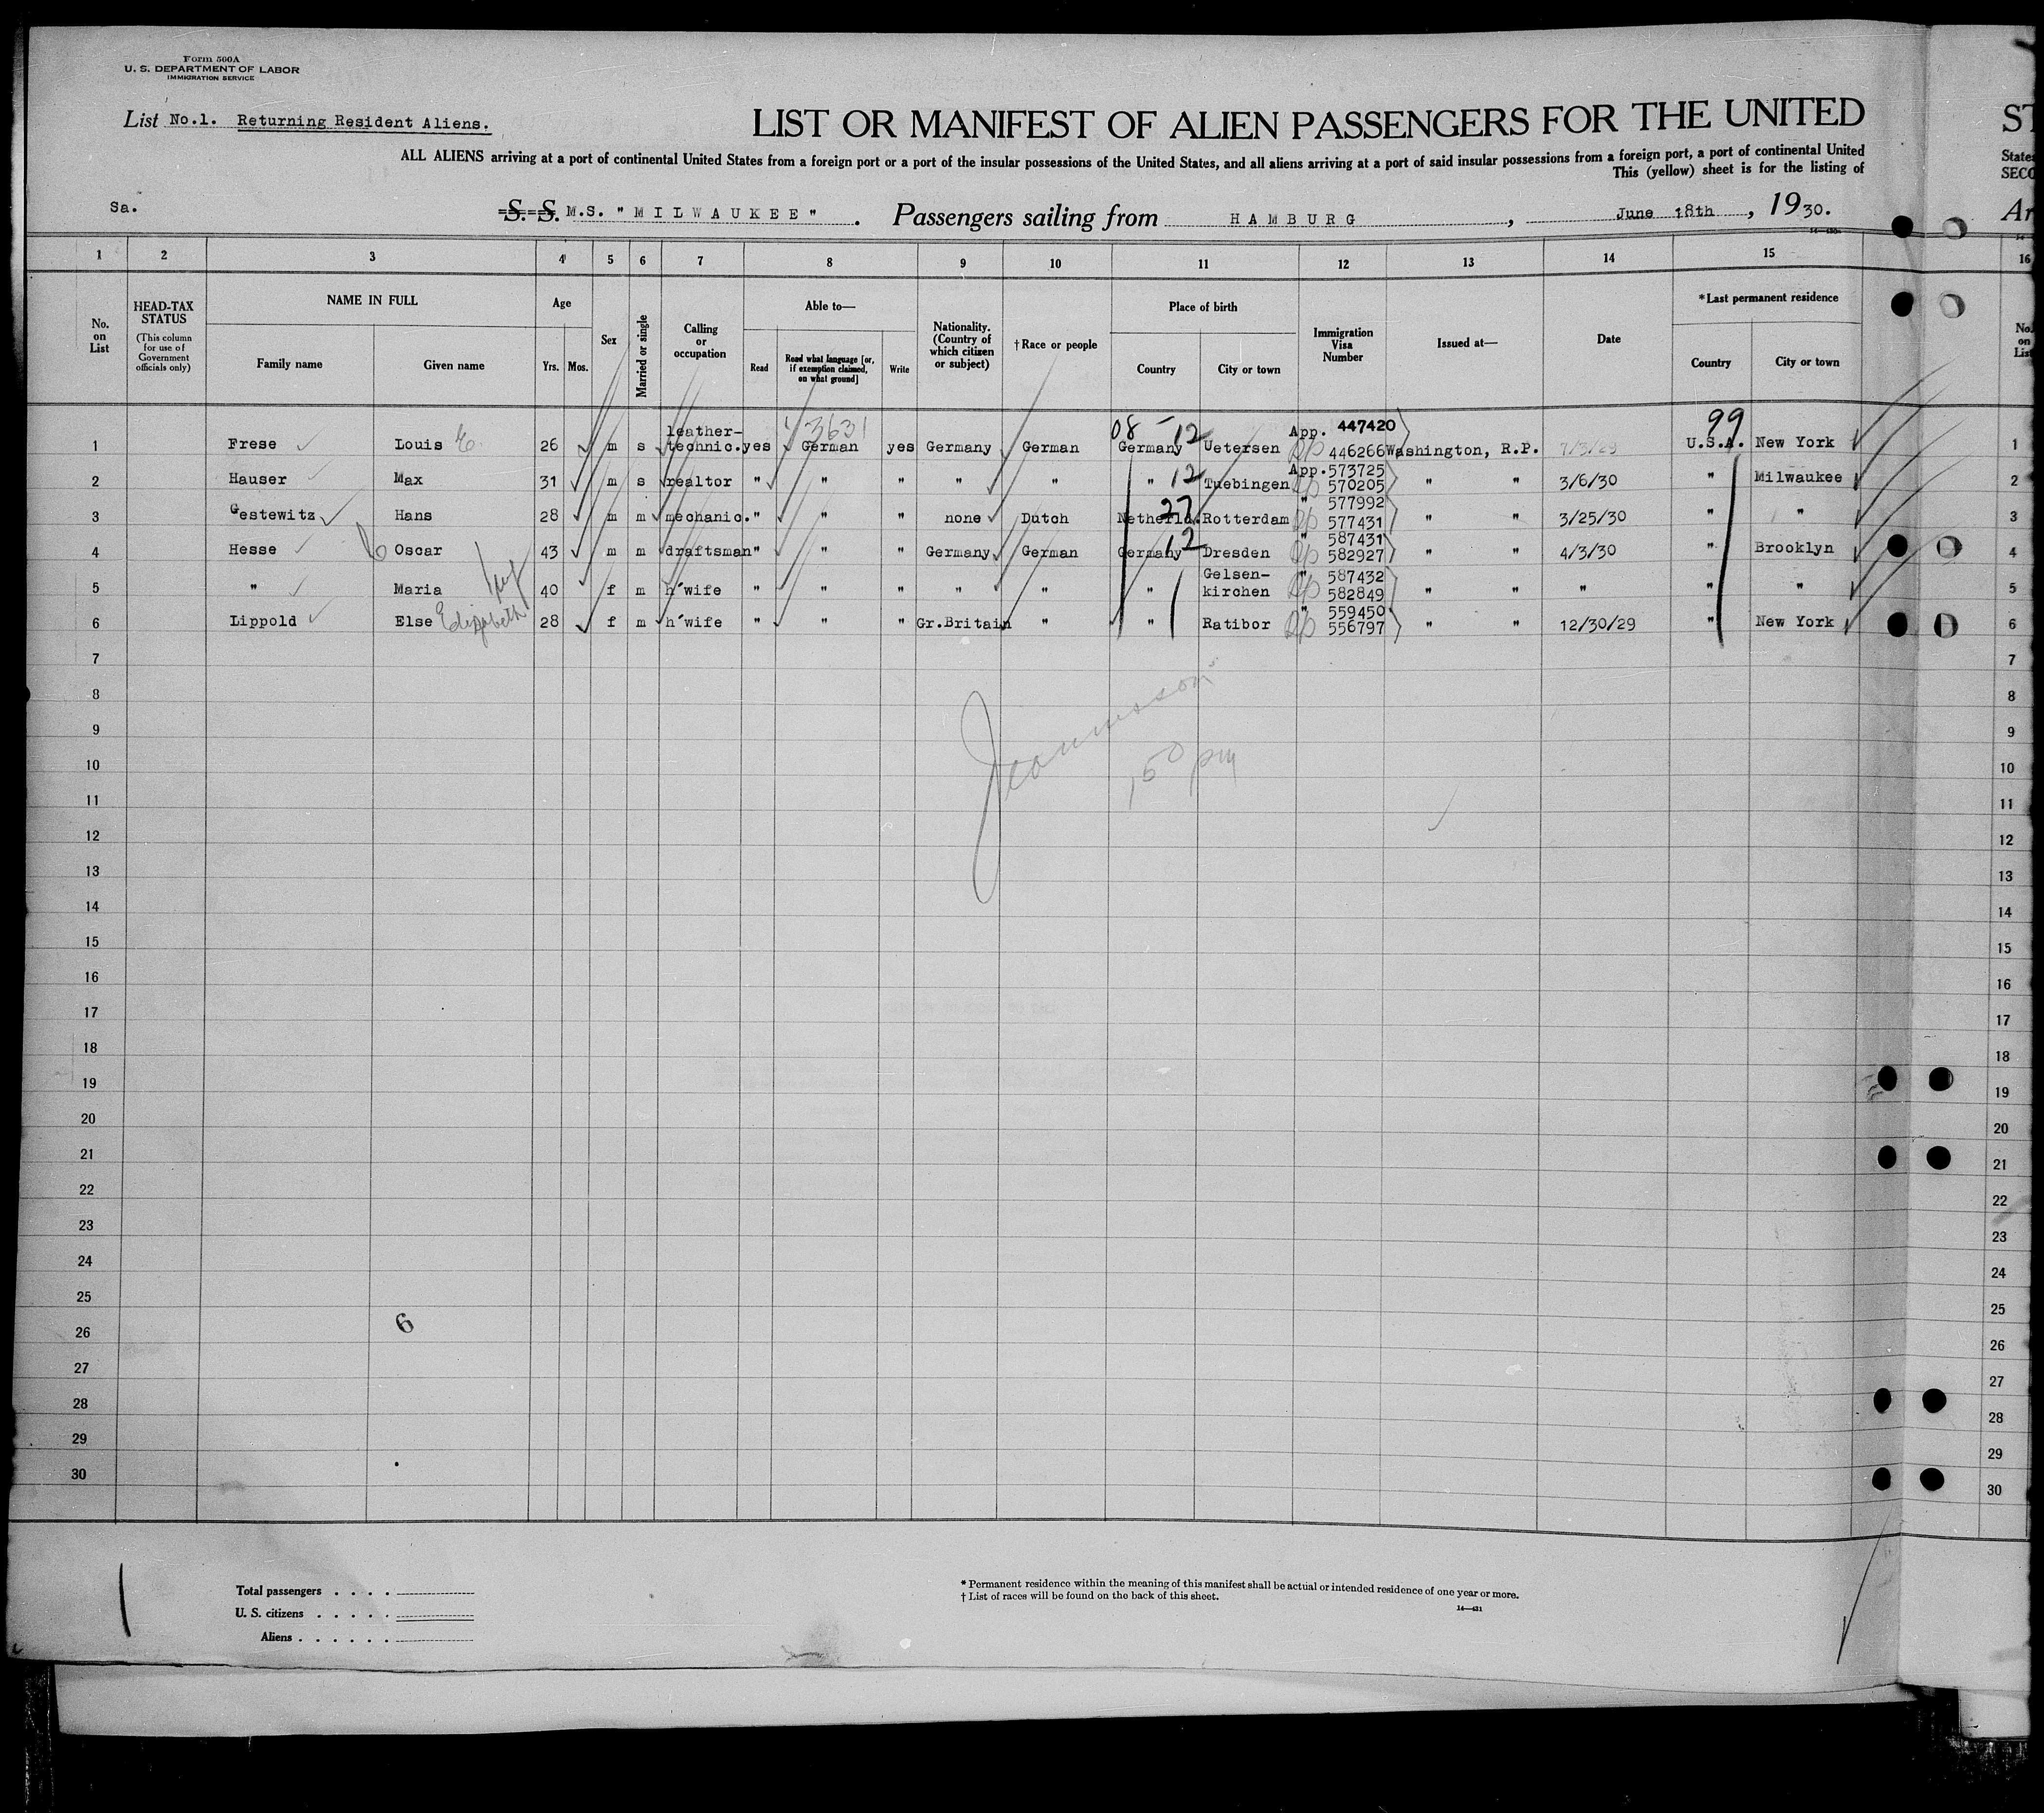 Form 500A
U. S. DEPARTMENT OF LABOR
IMMIGRATION SERVICE
List No.1. Returning Resident Aliens.
LIST OR MANIFEST OF ALIEN PASSENGERS FOR THE UNITED
ST
ALL ALIENS arriving at a port of continental United States from a foreign port or a port of the insular possessions of the United States, and all aliens arriving at a port of said insular possessions from a foreign port, a port of continental United
This (yellow) sheet is for the listing of
State
SECO
Sa. S. S. M.S. "MILWAUKEE". Passengers sailing from HAMBURG, June 18th, 1930.
Ar
1 2 3 4 5 6 7 8 9 10 11 12 13 14 15 16
No. on List
HEAD-TAX STATUS
(This column for use of Government officials only)
NAME IN FULL
Family name Given name
Age
Yrs. Mos.
Sex
Married or single
Calling or occupation
Able to—
Read
Read what language [or, if exemption claimed, on what ground]
Write
Nationality. (Country of which citizen or subject)
†Race or people
Place of birth
Country City or town
Immigration Visa Number
Issued at—
Date
*Last permanent residence
Country City or town
No. on List
1 Frese Louis E. 26 m s leather-technic. yes 3631 German yes Germany German 08 - 12 Germany Uetersen App. 447420 R/P 446266 Washington, R.P. 7/3/29 99 U.S.A. New York 1
2 Hauser Max 31 m s realtor " " " " " " 12 Tuebingen App. 573725 R/P 570205 " " 3/6/30 " Milwaukee 2
3 Gestewitz Hans 28 m m mechanic. " " " none Dutch 27 Netherld. Rotterdam " 577992 R/P 577431 " " 3/25/30 " " 3
4 Hesse Oscar 43 m m draftsman " " " Germany German Germany 12 Dresden " 587431 R/P 582927 " " 4/3/30 " Brooklyn 4
5 " Maria 40 f m h'wife " " " " " " Gelsen-kirchen " 587432 R/P 582849 " " " " " 5
6 Lippold Else Elizabeth 28 f m h'wife " " " Gr.Britain " " Ratibor " 559450 R/P 556797 " " 12/30/29 " New York 6
7 7
8 8
9 9
10 10
11 11
12 12
13 13
14 14
15 15
16 16
17 17
18 18
19 19
20 20
21 21
22 22
23 23
24 24
25 25
26 6 26
27 27
28 28
29 29
30 30
Total passengers . . . .
U. S. citizens . . . . .
Aliens . . . . . .
* Permanent residence within the meaning of this manifest shall be actual or intended residence of one year or more.
† List of races will be found on the back of this sheet.